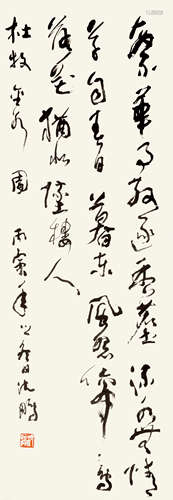 繁華事散逐香塵流水無情
草自春日暮東風怨啼鳥
落花猶似墜樓人
杜牧金谷園 丙寅年之冬日沈鵬